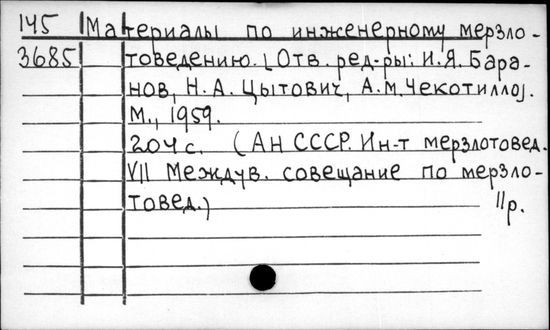 145 Материалы по инженерному мерзло-
3685 товедению. [Отв. ред-ры: И.Я. Бара-
нов, Н.А. Цытович, А.М. Чекотилло].
М., 1959.
204 с. (АН СССР. Ин-т мерзлотовед.
VII Междув. совещание по мерзло-
товед.)
11р.